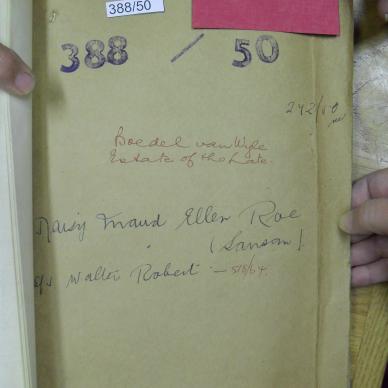 388/50
388 / 50
242/50
Boedel van Wyle
Estate of the Late.
Daisy Maud Ellen Roe
(Sansom).
s/s Walter Robert :— 518/64.